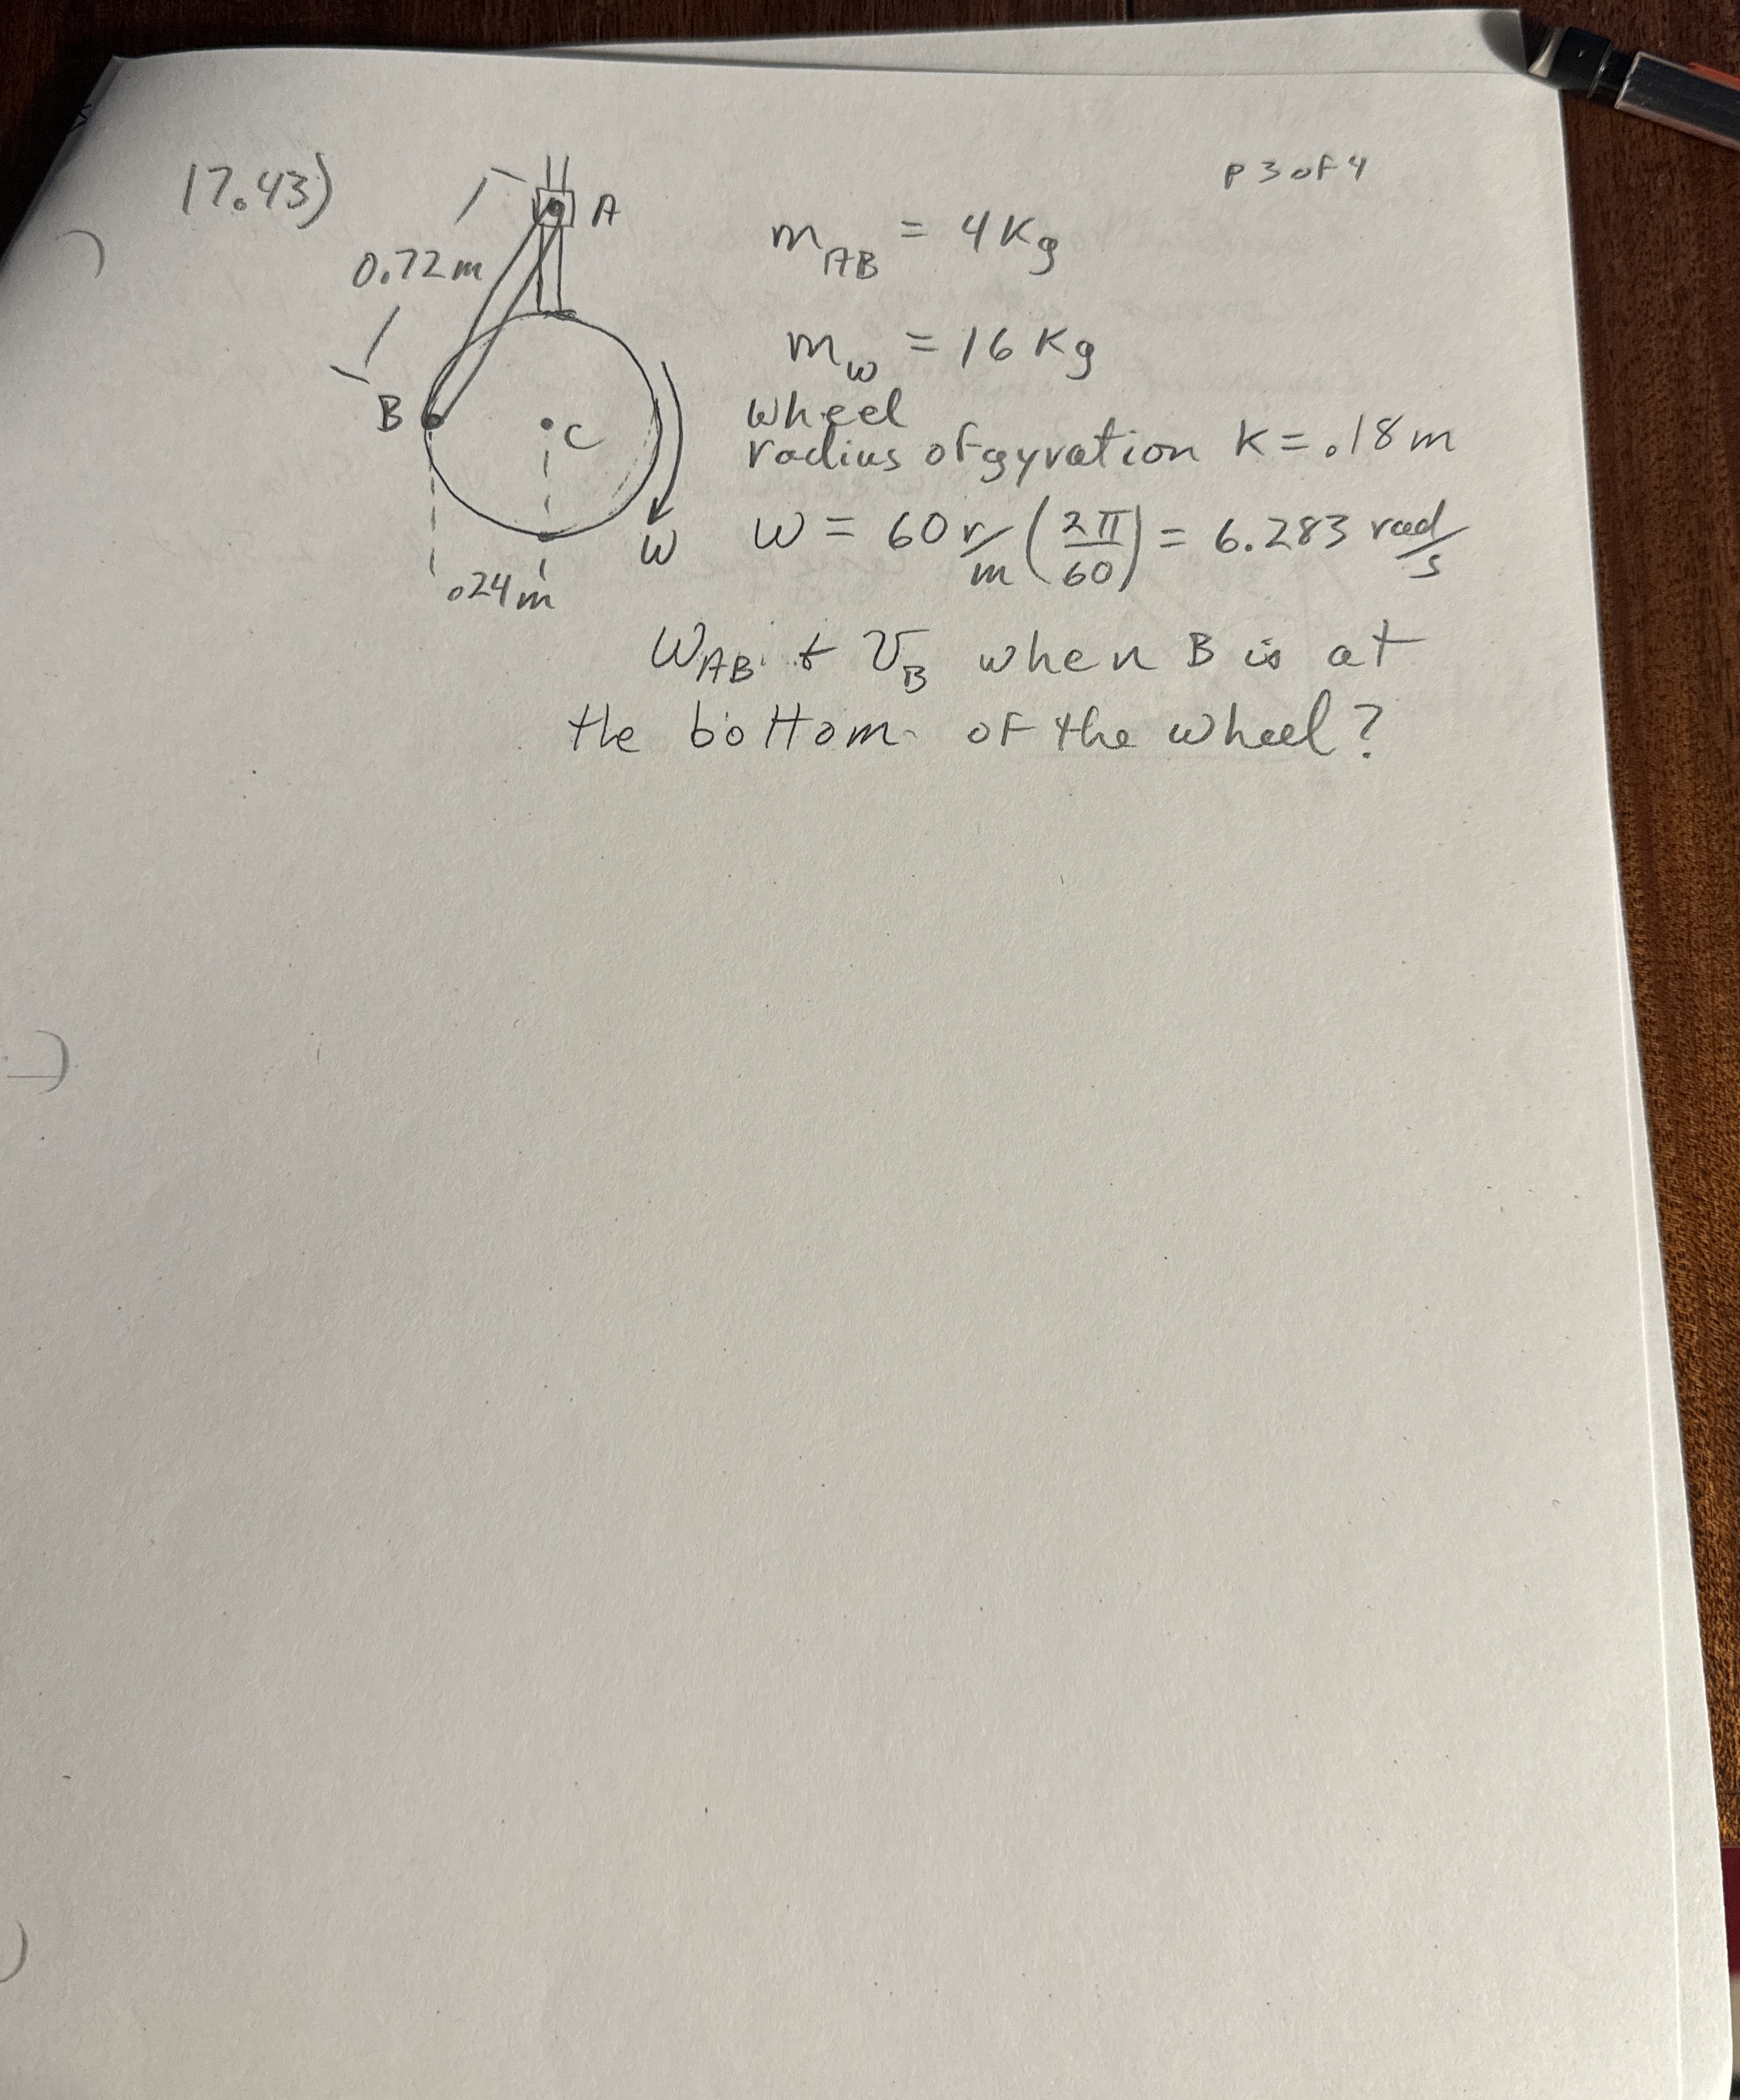 17.43)
p 3 of 4
A
0.72m
m_AB = 4 Kg
m_w = 16 Kg
B
C
wheel
radius of gyration K = .18 m
ω
ω = 60 r/m (2π/60) = 6.283 rad/s
.24m
ω_AB + v_B when B is at
the bottom of the wheel?